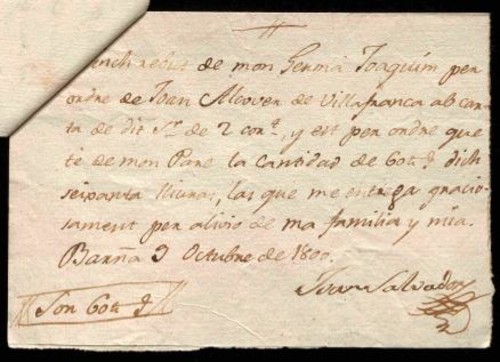 Tinch rebut de mon Germá Joaquim per
ordre de Joan Alcover de Villafranca ab car-
ta de dit Sr. de 2 cort., y est per ordre que
te de mon Pare la cantidad de 60 tt dich
seixanta lliuras, las que me entrega gracio-
sament per alivio de ma familia y mia.
Barña 9 Octubre de 1800.
Juan Salvador
Son 60 tt